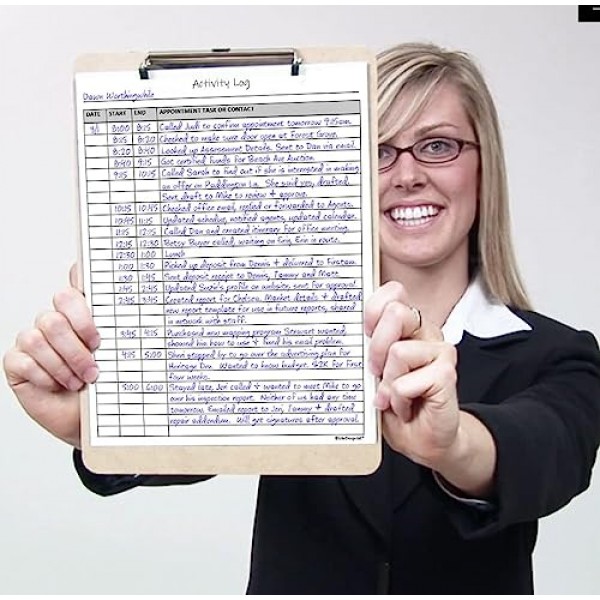 Activity Log
Dawn Worthingwhile
DATE START END APPOINTMENT TASK OR CONTACT
9/1 8:00 8:15 Called Judi to confirm appointment tomorrow 9:15am.
8:15 8:20 Checked to make sure door open at Forrest Grove.
8:20 8:40 Looked up Assessment Details. Sent to Dan via email.
8:40 9:15 Got certified funds for Beach Ave Auction.
9:15 10:15 Called Sarah to find out if she is interested in making
an offer on Paddington Ln. She said yes, drafted.
Sent draft to Mike to review + approve.
10:15 10:45 Checked office email, replied or forwarded to Agents.
10:45 11:15 Updated schedule, notified agents, updated calendar.
11:15 12:15 Called Dan and created itinerary for office meeting.
12:15 12:30 Betsy Buyer called, waiting on firg, Eric in route.
12:30 1:00 Lunch
1:00 1:30 Picked up deposit from Dennis + delivered to Firstam.
1:30 1:45 Sent deposit receipt to Dennis, Tammy and Matt.
1:45 2:45 Updated Suzie's profile on website, sent for approval.
2:45 3:45 Created report for Chelsea. Market details + drafted
new report template for use in future reports, shared
in network with staff.
3:45 4:15 Purchased new mapping program Stewart wanted,
showed him how to use it + fixed his email problem.
4:15 5:00 Sheri stopped by to go over the advertising plan for
Heritage Dev. Wanted to know budget. $2K for First
four weeks.
5:00 6:00 Stayed late, Jeri called + wanted to meet Mike to go
over his inspection report. Neither of us had any time
tomorrow. Emailed report to Jeri, Tammy + drafted
repair addendum. Will get signatures after approval.